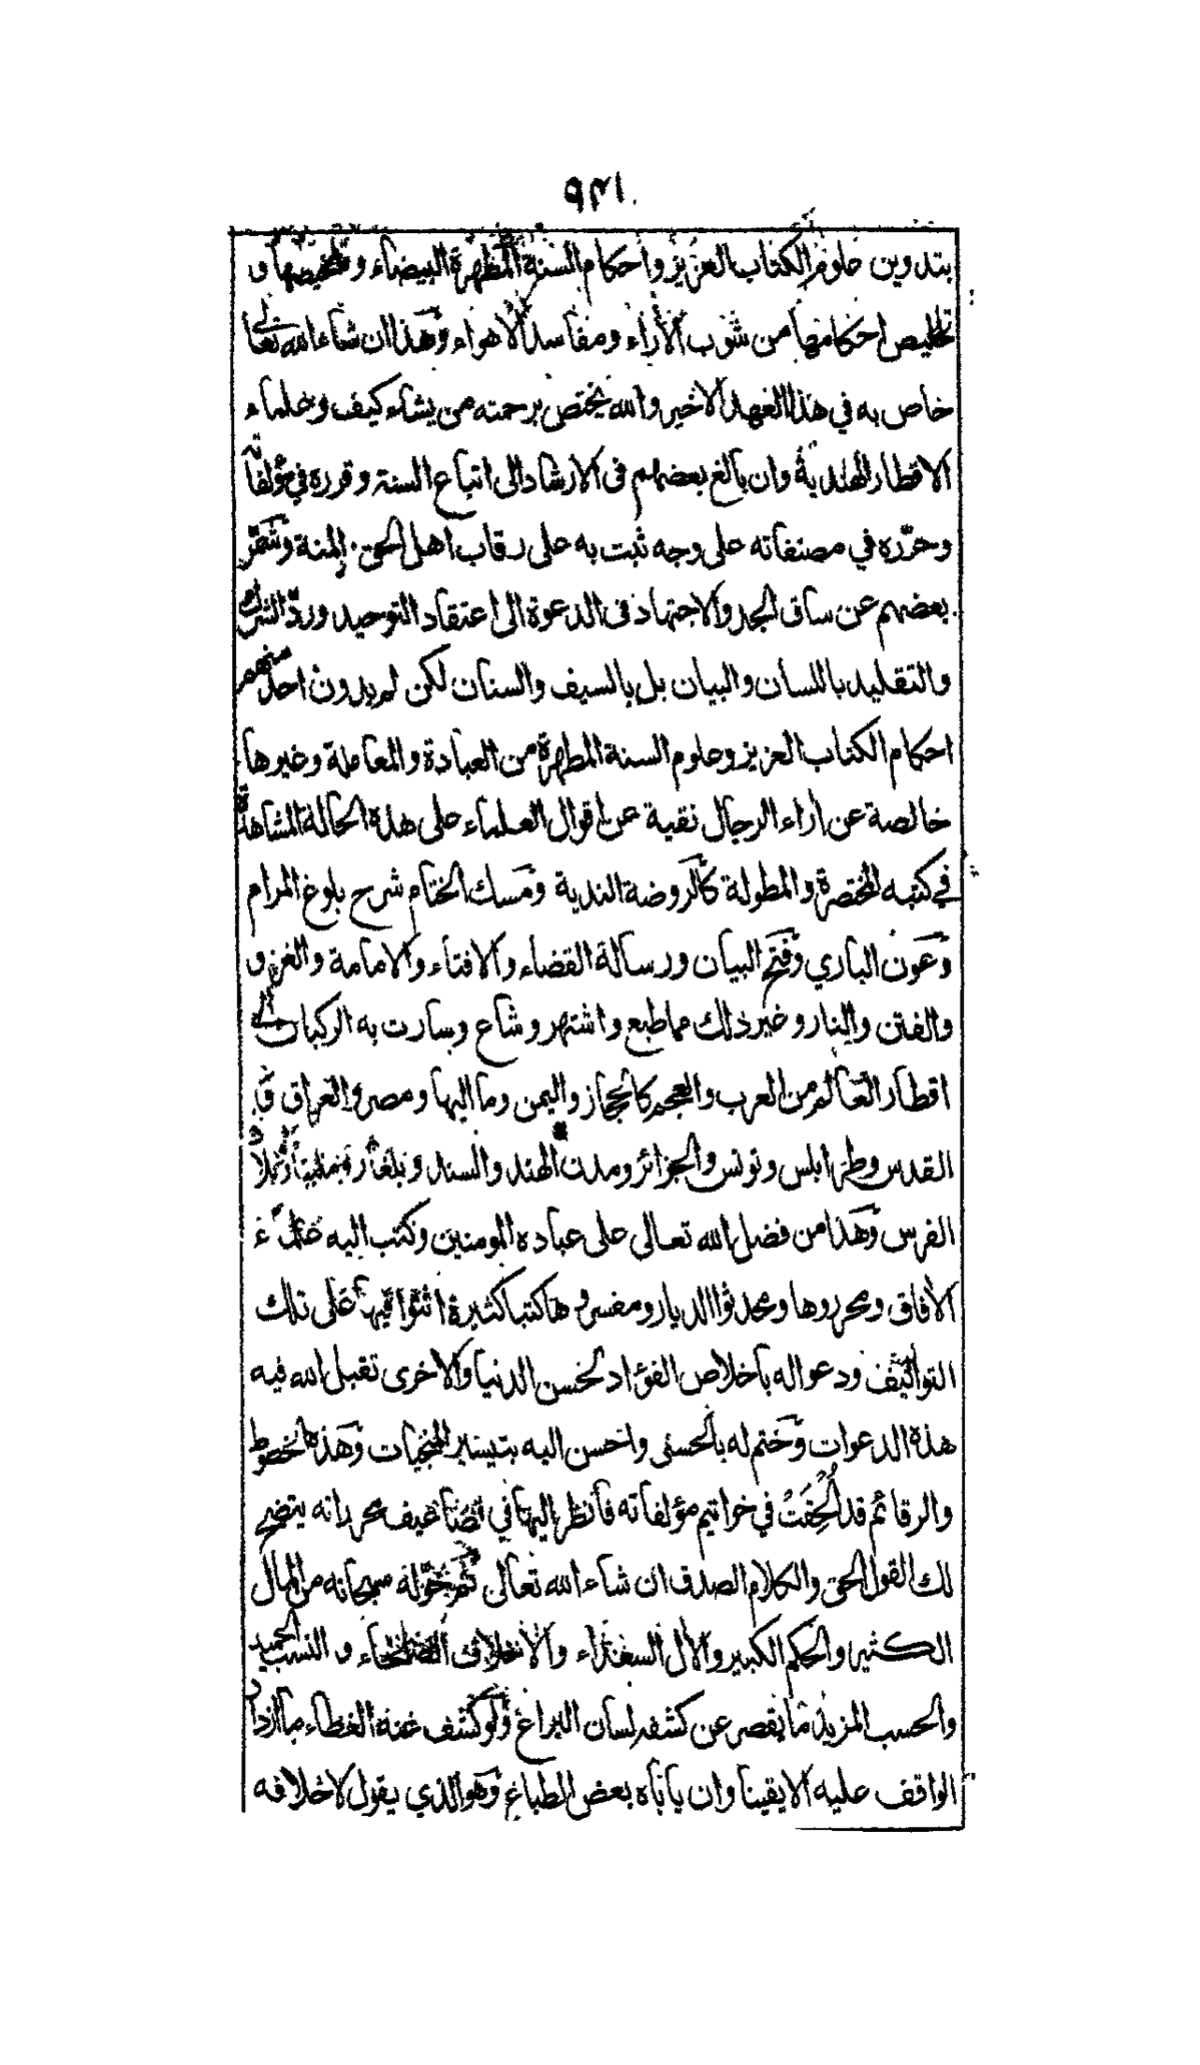 ٩٣١
بتدوين علوم الكتاب العزيز واحكام السنة المطهرة البيضاء وتلخيصها و
تخليص احكامها من شوب الآراء ومفاسد الاهواء وهذا ان شاء الله تعالى
خاص به في هذا العهد الاخير والله يختص برحمته من يشاء كيف وعلماء
الاقطار الهندية وان بالغ بعضهم فى الارشاد الى اتباع السنة وقرره في مؤلفاته
وحرّره في مصنفاته على وجه ثبت به على رقاب اهل الحق المنة وشمّر
بعضهم عن ساق الجد والاجتهاد فى الدعوة الى اعتقاد التوحيد وردّ الشرك
والتقليد باللسان والبيان بل بالسيف والسنان لكن لم يدون احد منهم
احكام الكتاب العزيز وعلوم السنة المطهرة من العبادة والمعاملة وغيرها
خالصة عن اراء الرجال نقية عن اقوال العلماء على هذه الحالة المشاهدة
في كتبه المختصرة والمطولة كالروضة الندية ومسك الختام شرح بلوغ المرام
وعون الباري وفتح البيان ورسالة القضاء والافتاء والامامة والغزو
والفتن والنار وغير ذلك مما طبع واشتهر وشاع وسارت به الركبان الى
اقطار العالم من العرب والعجم كالحجاز واليمن وما اليها ومصر والعراق و
القدس وطرابلس وتونس والجزائر ومدن الهند والسند وبلغار
الفرس وهذا من فضل الله تعالى على عباده المومنين وكتب اليه
الآفاق ومحرروها ومحدثوا الديار ومفسروها كتبا كثيرة اثنوا فيها على تلك
التواليف ودعوا له باخلاص الفؤاد لحسن الدنيا والاخرى تقبل الله فيه
هذه الدعوات وختم له بالحسنى واحسن اليه بتيسير المنجيات وهذه الخطوط
والرقائم قد أُلحِقَتْ في خواتيم مؤلفاته فانظر اليها في تضاعيف محرراته يتضح
لك القول الحق والكلام الصدق ان شاء الله تعالى ثم خوّله سبحانه من المال
الكثير والحكم الكبير والآل السعداء والاخلاف الصلحاء و النسب الحميد
والحسب المزيد ما يقصر عن كشفه لسان اليراع ولو كشف عنه الغطاء ما ازداد
الواقف عليه الا يقينا وان يأباه بعض الطباع وهو الذي يقول لاخلافه